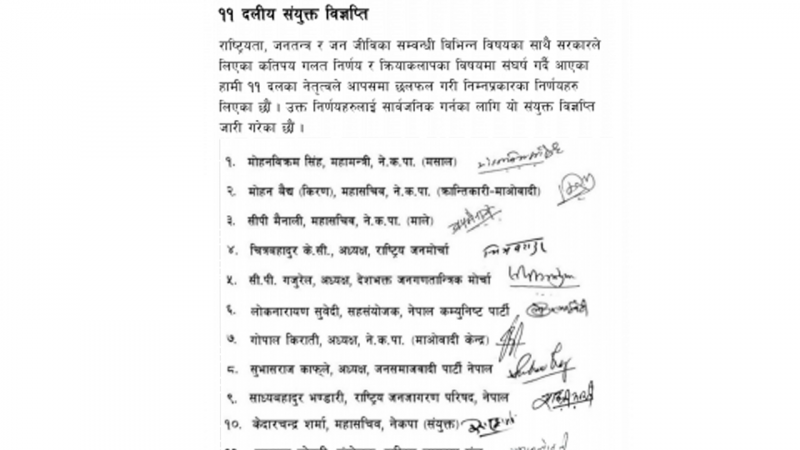 ११ दलीय संयुक्त विज्ञप्ति
राष्ट्रियता, जनतन्त्र र जन जीविका सम्बन्धी विभिन्न विषयका साथै सरकारले
लिएका कतिपय गलत निर्णय र क्रियाकलापका विषयमा संघर्ष गर्दै आएका
हामी ११ दलका नेतृत्वले आपसमा छलफल गरी निम्नप्रकारका निर्णयहरु
लिएका छौं । उक्त निर्णयहरुलाई सार्वजनिक गर्नका लागि यो संयुक्त विज्ञप्ति
जारी गरेका छौं ।
१. मोहनविक्रम सिंह, महामन्त्री, ने.क.पा. (मसाल)
२. मोहन बैद्य (किरण), महासचिव, ने.क.पा. (क्रान्तिकारी-माओवादी)
३. सीपी मैनाली, महासचिव, ने.क.पा. (माले)
४. चित्रबहादुर के.सी., अध्यक्ष, राष्ट्रिय जनमोर्चा
५. सी.पी. गजुरेल, अध्यक्ष, देशभक्त जनगणतान्त्रिक मोर्चा
६. लोकनारायण सुवेदी, सहसंयोजक, नेपाल कम्युनिष्ट पार्टी
७. गोपाल किराती, अध्यक्ष, ने.क.पा. (माओवादी केन्द्र)
८. सुभासराज काफ्ले, अध्यक्ष, जनसमाजवादी पार्टी नेपाल
९. साध्यबहादुर भण्डारी, राष्ट्रिय जनजागरण परिषद, नेपाल
१०. केदारचन्द्र शर्मा, महासचिव, नेकपा (संयुक्त)